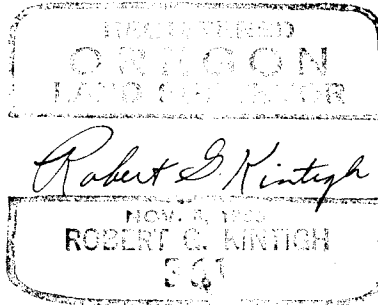 REGISTERED
OREGON
LAND SURVEYOR
Robert G Kintigh
NOV.
ROBERT G. KINTIGH